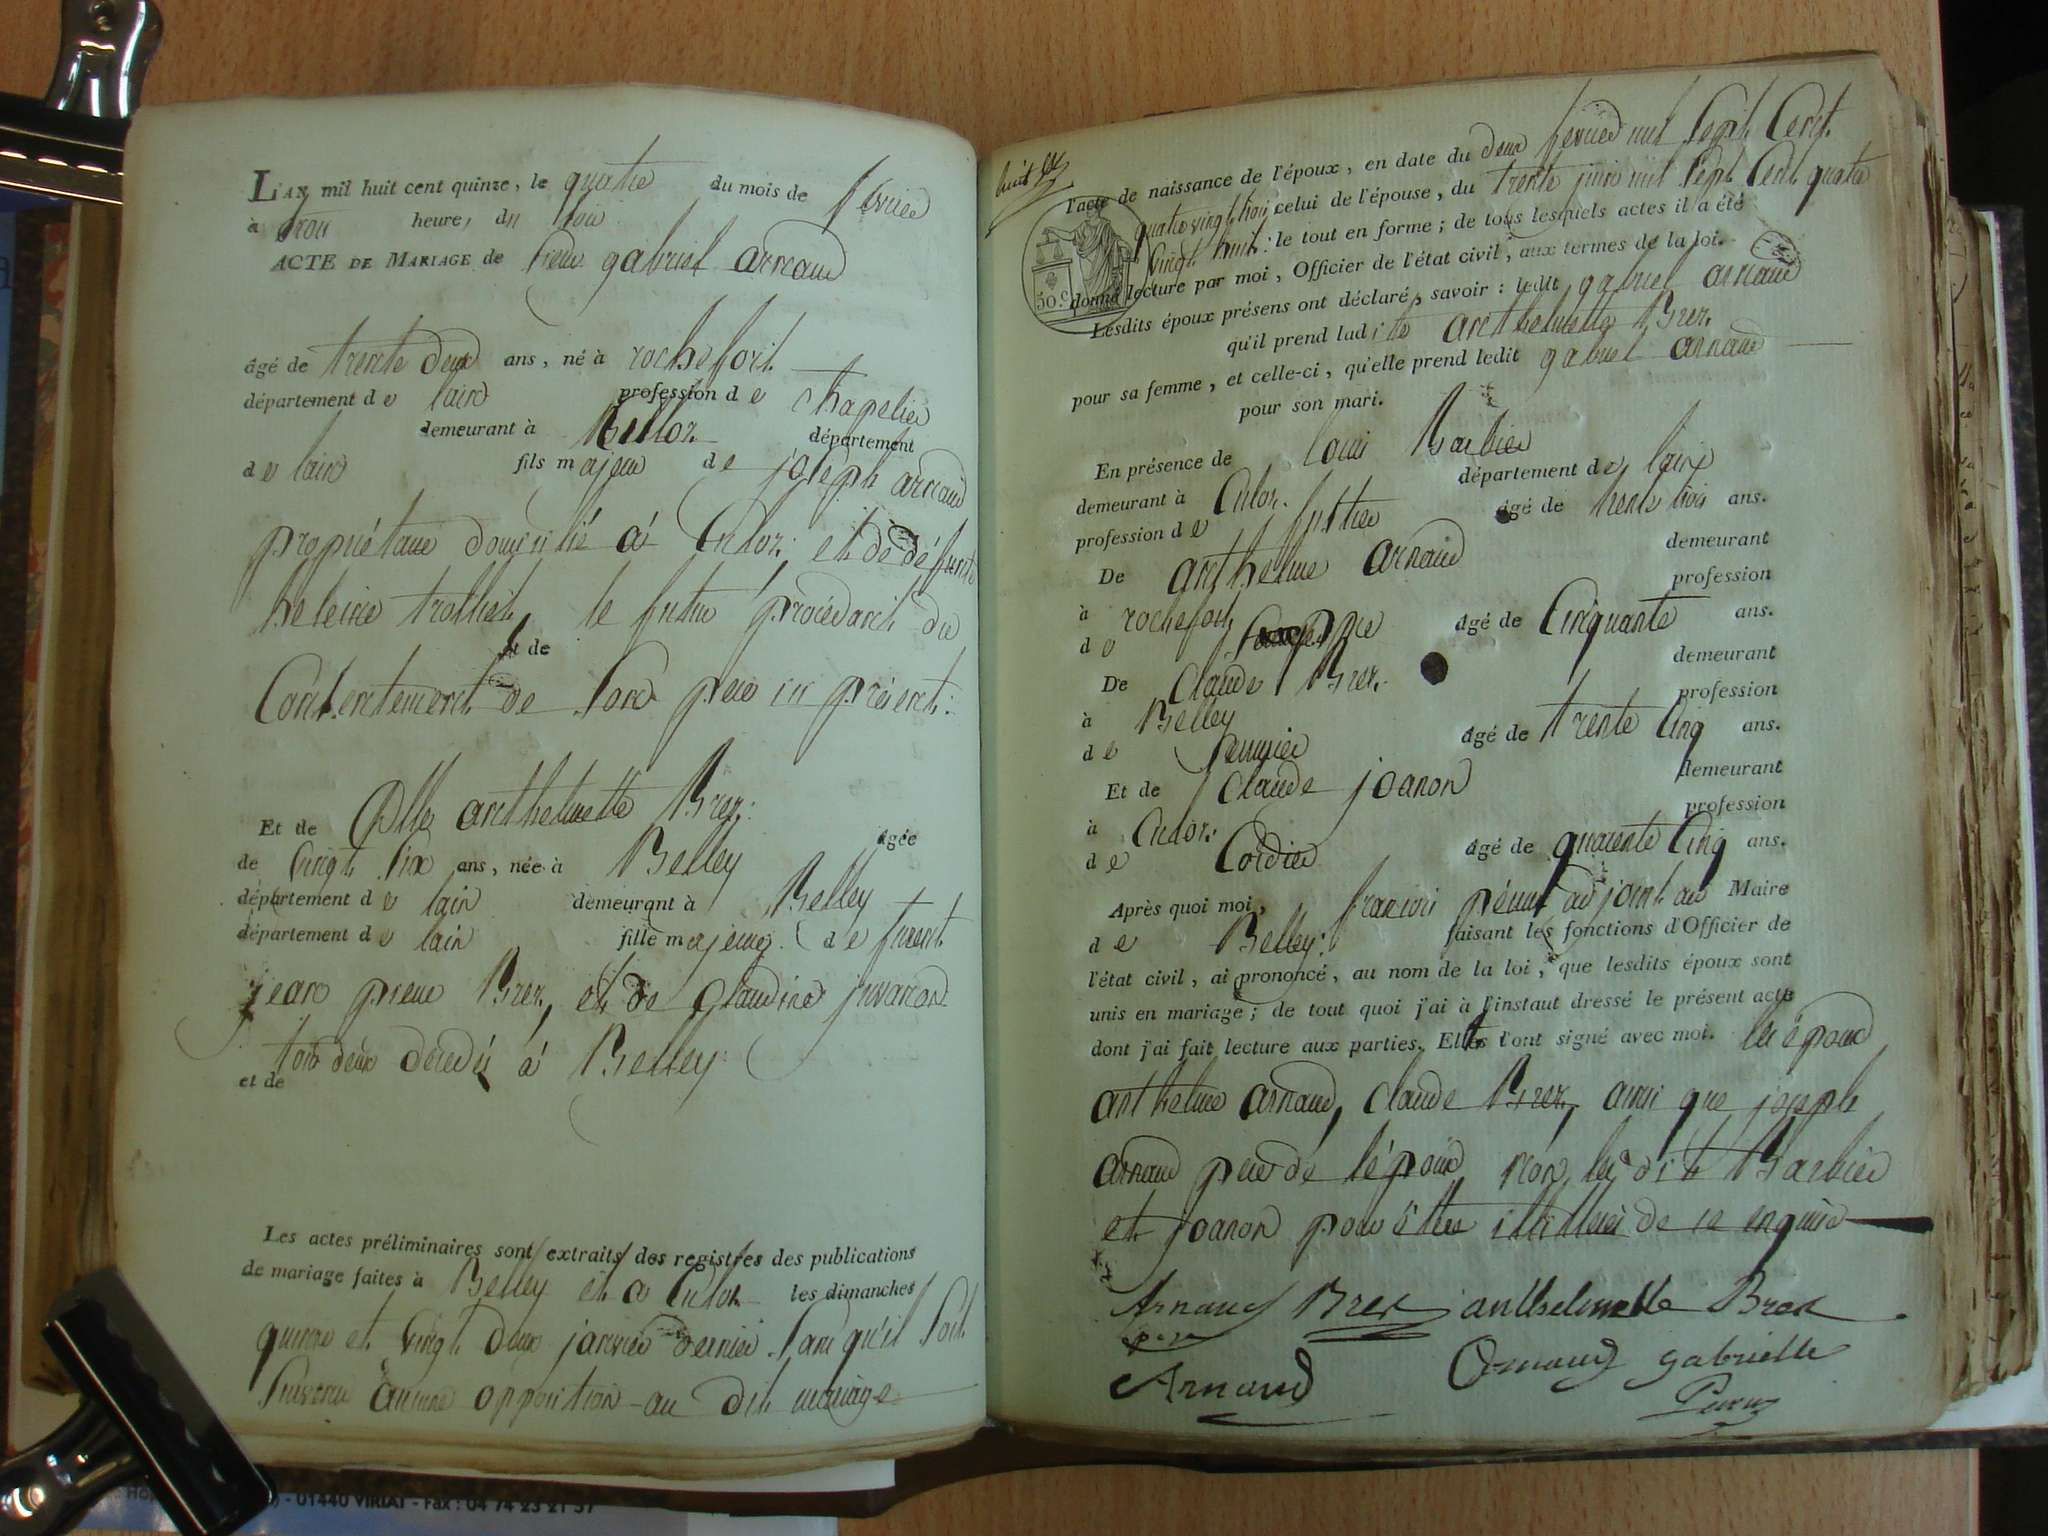 L'AN mil huit cent quinze, le quatre du mois de février
à trois heure, du soir
ACTE DE MARIAGE de sieur gabriel arnaud
âgé de trente deux ans, né à rochefort
département de lain profession de chapelier
demeurant à département
de lain fils majeur de joseph arnaud
propriétaire domicilié à Culoz, et de défunte
heleine trolliet, le futur procédant du
et de
Consentement de son père ici présent:
Et de Dlle anthelmette Brez: âgée
de vingt six ans, née à Belley
département de lain demeurant à Belley
département de lain fille majeure de furent
jean pierre Brez, et de Claudine juvanon
tous deux décédés à Belley:
et de
Les actes préliminaires sont extraits des registres des publications
de mariage faites à Belley et à Culoz les dimanches
quinze et vingt deux janvier dernier sans qu'il soit
survenu aucune opposition au dit mariage
l'acte de naissance de l'époux, en date du deux février mil sept cent
quatre vingt trois celui de l'épouse, du trente juin mil sept cent quatre
vingt huit: le tout en forme; de tous lesquels actes il a été
donné lecture par moi, Officier de l'état civil, aux termes de la loi.
50 c
Lesdits époux présens ont déclaré, savoir: ledit gabriel arnaud
qu'il prend ladite anthelmette Brez.
pour sa femme, et celle-ci, qu'elle prend ledit gabriel arnaud
pour son mari.
En présence de louis Barbier
demeurant à Culoz. département de lain
profession de âgé de trente trois ans.
De anthelme arnaud demeurant
à rochefort profession
de âgé de Cinquante ans.
De Claude Brez. demeurant
à Belley profession
de âgé de trente Cinq ans.
Et de Claude joanon demeurant
à Culoz: profession
de Cordier âgé de quarente Cinq ans.
Après quoi moi, françois adjoint au Maire
de Belley: faisant les fonctions d'Officier de
l'état civil, ai prononcé, au nom de la loi, que lesdits époux sont
unis en mariage; de tout quoi j'ai à l'instant dressé le présent acte
dont j'ai fait lecture aux parties. Elles l'ont signé avec moi. les époux
anthelme arnaud, Claude Brez, ainsi que joseph
arnaud père de l'époux non les dits Barbier
et joanon pour être illitérés de ce enquis
Arnaud Brez anthelmette Brez
père
Arnaud Arnaud gabrielle
- 01440 VIRIAT - Fax : 04 74 23 21 57